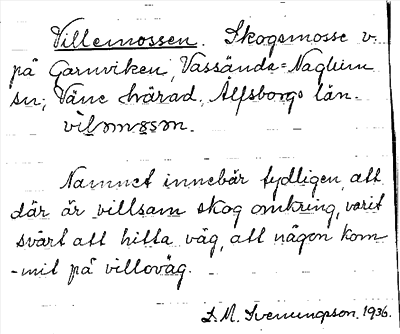 Villemossen. Skogsmosse v.
på Garnviken, Vassända-Naglum
sn; Väne härad. Älfsborgs län.
Namnet innebär tydligen, att
där är villsam skog omkring, varit
svårt att hitta väg, att någon kom-
-mit på villoväg.
1936.